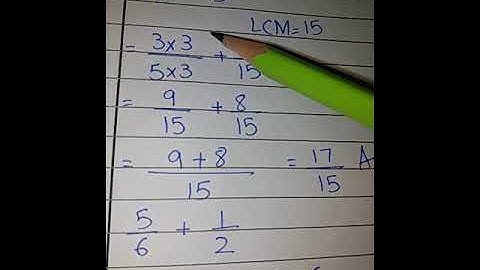 LCM=15
= 3×3/5×3 + /15
= 9/15 + 8/15
= 9+8/15 = 17/15 A
5/6 + 1/2